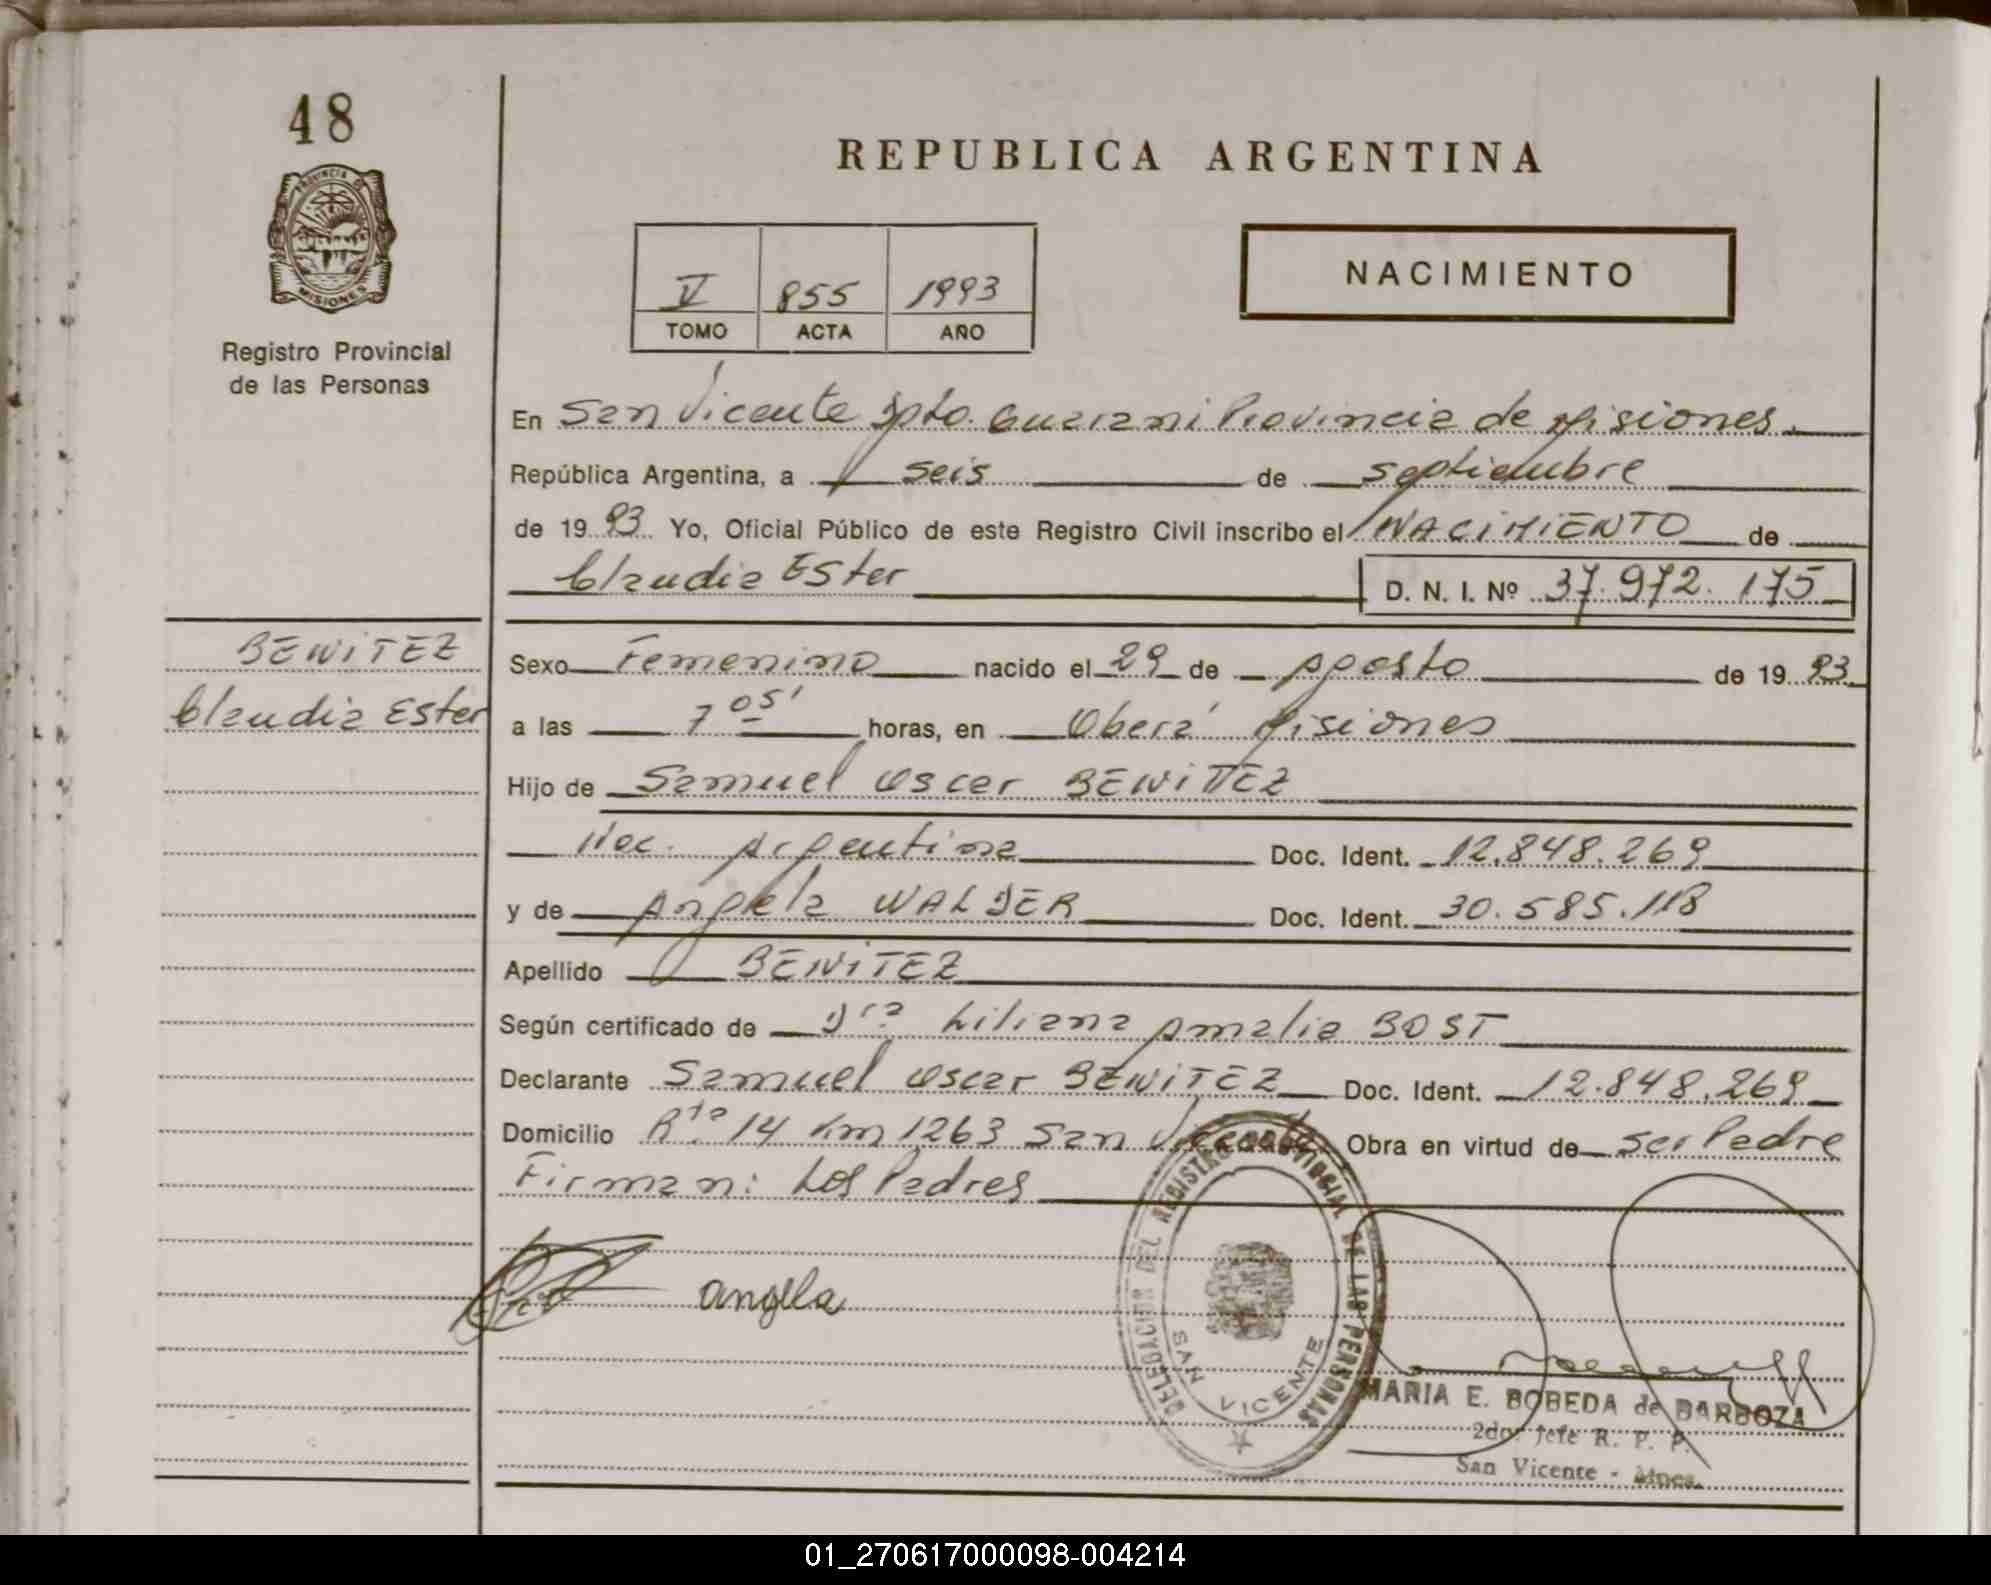 48
PROVINCIA DE
MISIONES
Registro Provincial
de las Personas
BENITEZ
Claudia Ester
REPUBLICA ARGENTINA
V 855 1993
TOMO ACTA AÑO
NACIMIENTO
En San Vicente Dpto. Guarani Provincia de Misiones.
República Argentina, a seis de septiembre
de 19 93 Yo, Oficial Público de este Registro Civil inscribo el NACIMIENTO de
Claudia Ester D. N. I. Nº 37.972.175
Sexo Femenino nacido el 29 de Agosto de 19 93
a las 7 05' horas, en Oberá Misiones
Hijo de Samuel Oscar BENITEZ
Nac. Argentina Doc. Ident. 12.848.269
y de Angela WALDER Doc. Ident. 30.585.118
Apellido BENITEZ
Según certificado de Dra Liliana Amalia BOST
Declarante Samuel Oscar BENITEZ Doc. Ident. 12.848.269
Domicilio Rta 14 Km 1263 San Vicente Obra en virtud de ser Padre
Firman: Los Padres
Angela
DELEGACION DEL REGISTRO PROVINCIAL DE LAS PERSONAS
SAN VICENTE
MARIA E. BOBEDA de BARBOZA
2do. Jefe R. P. P.
San Vicente - Mnes.
01_270617000098-004214